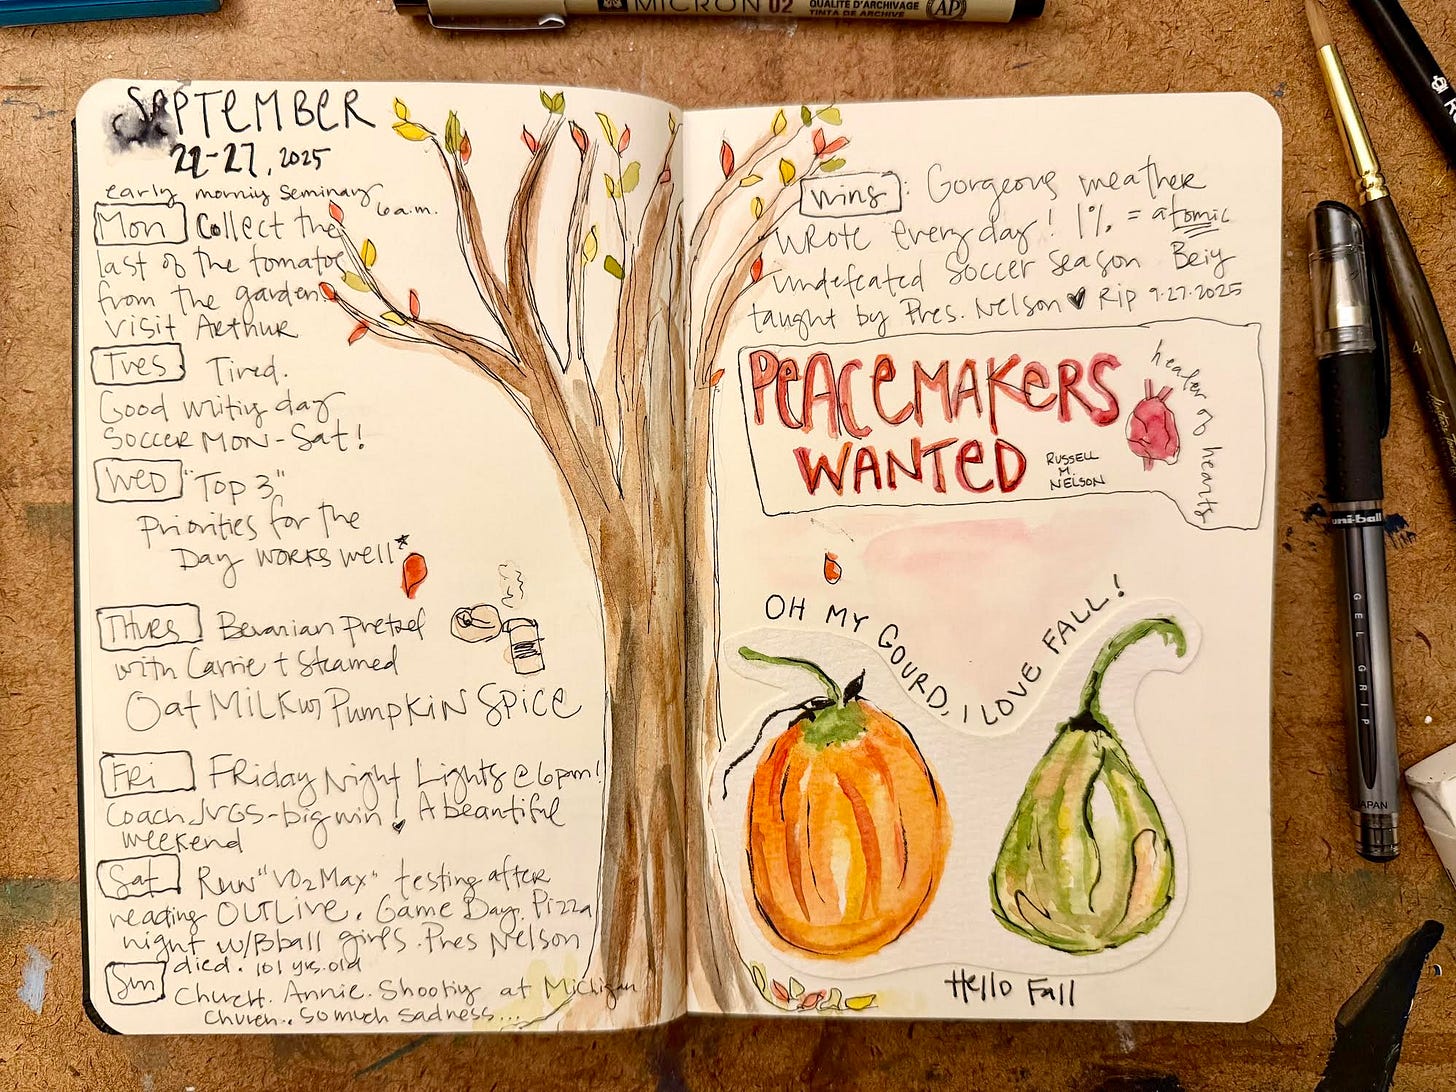 MICRON 02
QUALITÉ D'ARCHIVAGE
TINTA DE ARCHIVE
AP
SEPTEMBER
22-27, 2025
early morning seminary
6 a.m.
Mon Collect the
last of the tomatoes
from the garden.
Visit Arthur
Tues Tired.
Good writing day
SOCCER MON - Sat!
Wed "Top 3"
Priorities for the
Day works well*
Thurs Bavarian Pretzel
with Carrie + Steamed
Oat MILK w/ PUMPKIN SPICE
Fri FRIDAY Night Lights @ 6pm!
Coach JVGS - big win! A beautiful
weekend
Sat Run "VO2 Max" testing after
reading OUTLIVE. Game Day. Pizza
night w/Bball girls. Pres Nelson
died. 101 yrs. old
Sun Church. Annie. Shooting at Michigan
Church.. So much sadness...
Wins: Gorgeous weather
Wrote every day! 1% = atomic
Undefeated Soccer season Being
taught by Pres. Nelson ♥ RIP 9.27.2025
PEACEMAKERS
WANTED
RUSSELL
M.
NELSON
healer of hearts
OH MY GOURD, I LOVE FALL!
Hello Fall
uni-ball
GEL GRIP
JAPAN
4